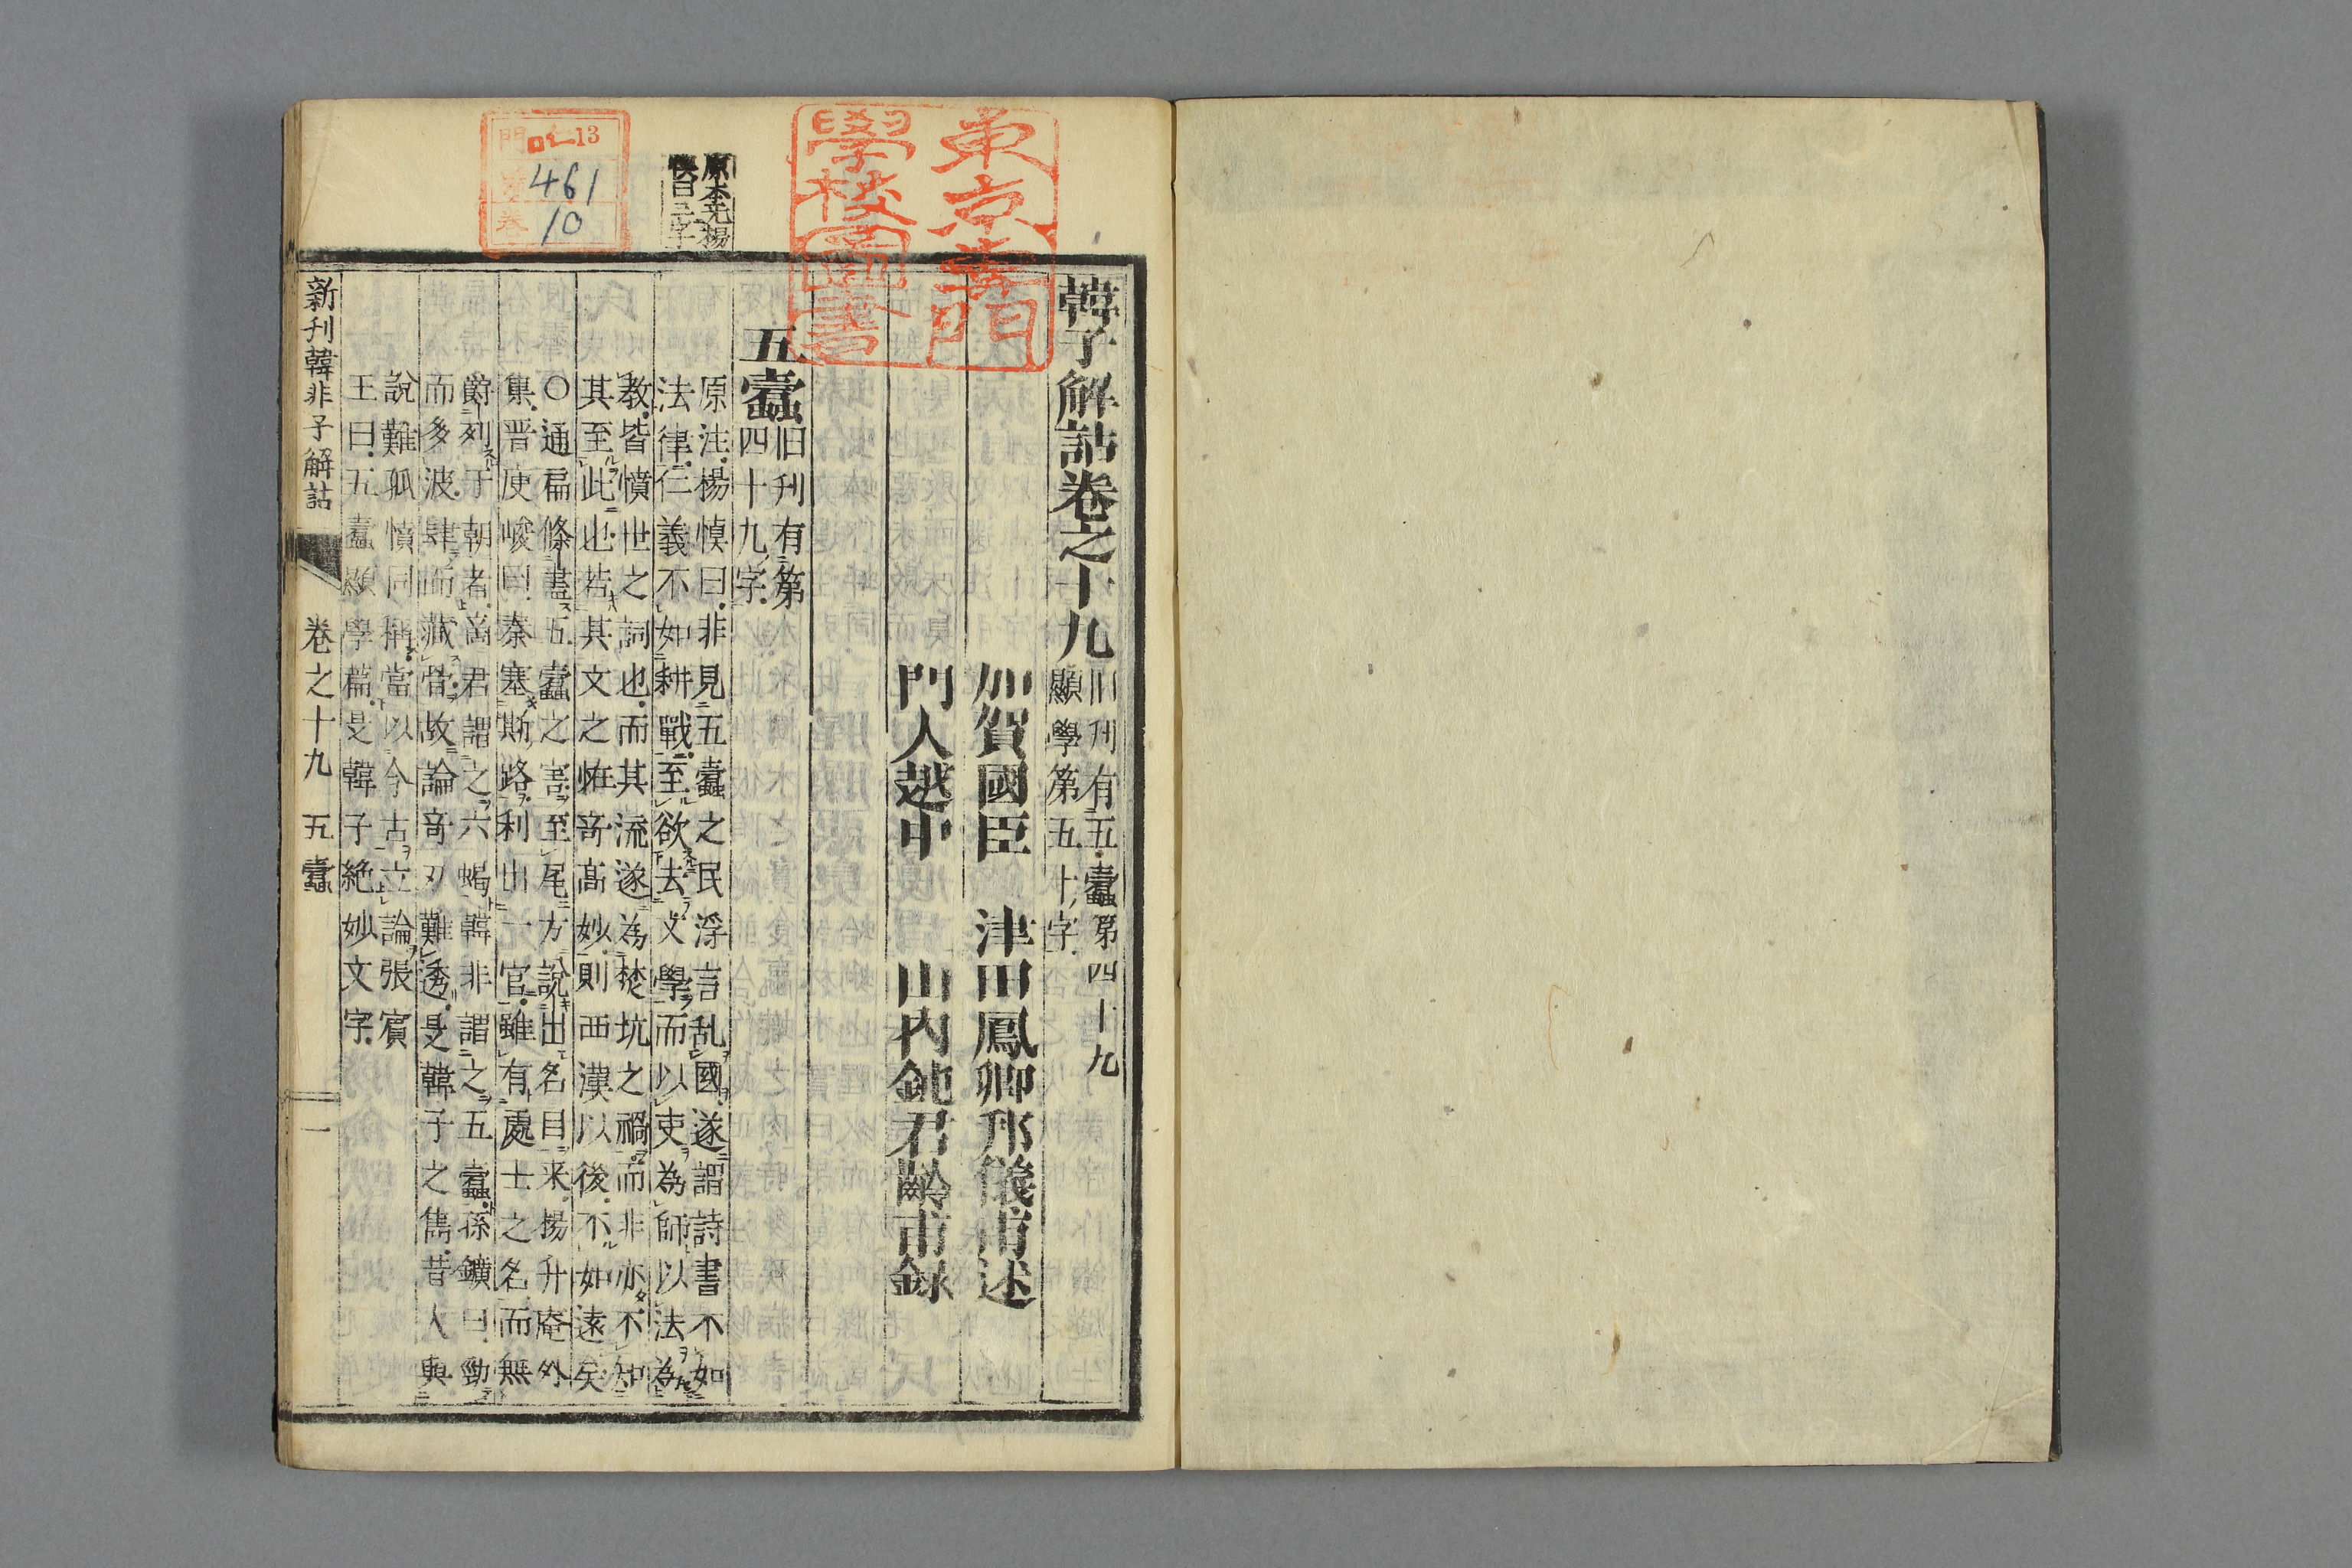 韓子解詁卷之十九
旧刋有五蠹第四十九
顯學第五十字
加賀國臣 津田鳳卿邦儀甫述
門人越中 山内鈍君齢甫録
五蠹
旧刋有第
四十九字
原注楊慎曰非見五蠹之民浮言乱國遂謂詩書不如
法律仁義不如耕戰至欲去文學而以吏為師以法為
教皆憤世之詞也而其流遂為焚坑之禍而非亦不知
其至此也若其文之恠奇高妙則西漢以後不如遠矣
○通扁條畫五蠹之害至尾方說出名目来楊升庵外
集晋庾峻曰秦塞斯路利出一官雖有處士之名而無
爵列于朝者商君謂之六蝎韓非謂之五蠹孫鑛曰勁
而多波肆而藏骨故論奇刃難透是韓子之雋昔人與
說難孤憤同稱當以今古立論張賓
王曰五蠹顯學篇是韓子絶妙文字
新刋韓非子解詁 卷之十九 五蠹 一
原本先楊
慎曰三字
東京專門
學校圖書
門 13
461
卷 10